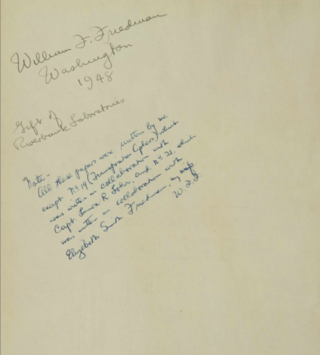 William F. Friedman
Washington
1948
Gift of
Riverbank Laboratories
Note -
All these papers were written by me
except No 19 (Transposition Ciphers) which
was written in collaboration with
Capt. Lenox R. Lohr, and No 21, which
was written in collaboration with
Elizebeth Smith Friedman, my wife
W.F.F.